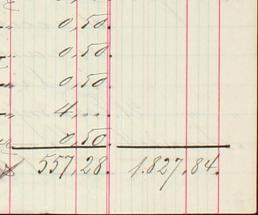 0,50.
0,50.
0,50
4,—
0,50.
557,28. 1.827,84.